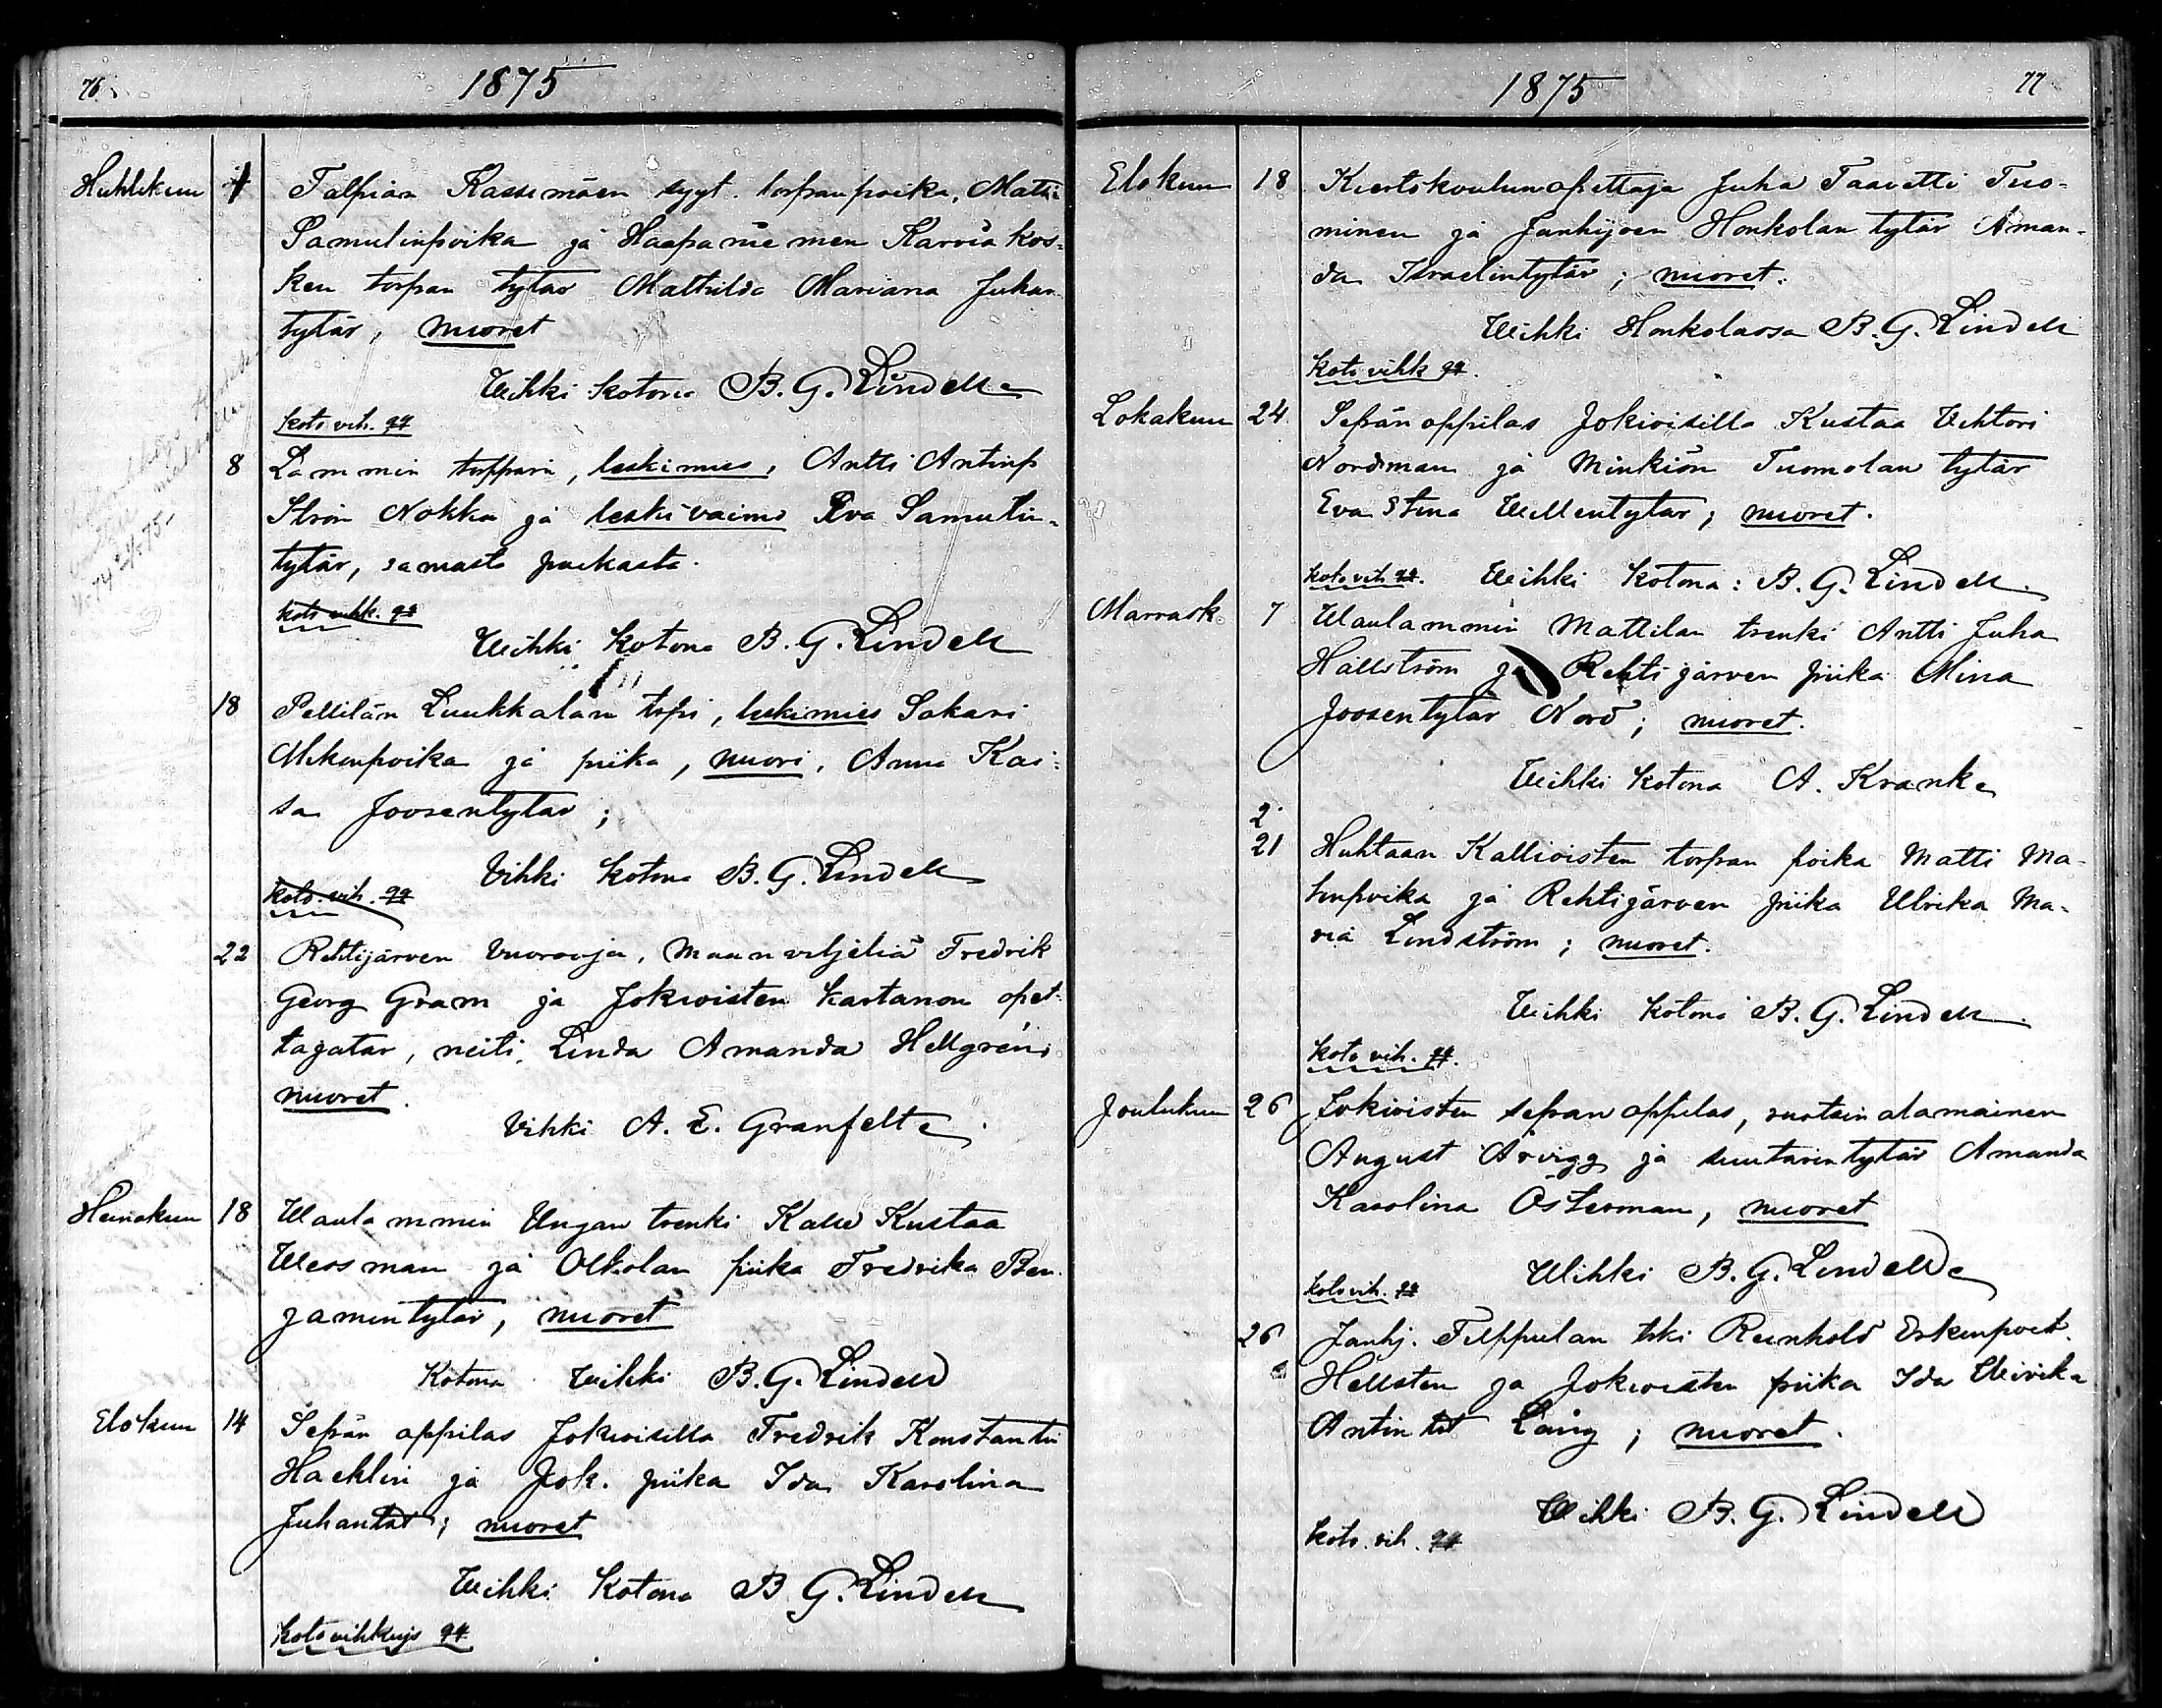 76
1875
Huhtikuu 1 Talpian Kassemäen sygt. torpanpoika, Matti
Samulinpoika ja Haapaniemen Karviakos-
ken torpan tytär Mathilda Mariana Juhan
tytär, nuoret
Wihki kotona B. G. Lindell
koto vih. qq
8 Lammin torppari, leskimies, Antti Antinp
Ström Nokka ja leskivaimo Eva Samulin-
tytär, samasta paikasta.
koto vihk. qq
Wihki kotona B. G. Lindell
18 Pellilän Luukkalan torp, leskimies Sakari
Mikonpoika ja piika, nuori, Anna Kai-
sa Joosentytär;
Vihki kotona B. G. Lindell
koto. vih. qq
22 Rehtijärven Vuoraaja, Maanviljeliä Fredrik
Georg Gram ja Jokioisten kartanon opet-
tajatar, neiti, Linda Amanda Hellgrén;
nuoret.
Vihki A. E. Granfelt
Heinakuu 18 Waulammin Ungan trenki Kalle Kustaa
Wessman ja Olkolan piika Fredrika Ben-
jamintytär, nuoret
Kotona wihki B. G. Lindell
Elokuu 14 Sepän oppilas Jokioisilla Fredrik Konstantin
Hacklin ja Jok. piika Ida Karolina
Juhantät; nuoret
Wihki kotona B G. Lindell
koto vihkujs qq
1875
77
Elokuu 18 Kiertokoulunopettaja Juha Taavetti Tuo-
minen ja Janhijoen Honkolan tytär Aman-
da Israelintytär; nuoret.
Wihki Honkolassa B. G. Lindell
koto vihk qq.
Lokakuu 24 Sepän oppilas Jokioisilla Kustaa Vihtori
Nordman ja Minkiön Tuomolan tytär
Eva Stina Willentytär; nuoret.
koto vih qq. Wihki kotona: B. G. Lindell
Marrask. 7 Waulammin Mattilan trenki Antti Juha
Hällström ja Rehtijärven piika Mina
Joosentytär Nord; nuoret.
Wihki kotona A. Kranke
2
21 Huhtaan Kallioisten torpan poika Matti Ma-
tinpoika ja Rehtijärven piika Ulrika Ma-
ria Lindström; nuoret.
Wihki kotona B. G. Lindell
koto vih. qq.
Joulukuu 26 Jokioisten sepän oppilas, ruotsin alamainen
August Arvigg ja suutarintytär Amanda
Karolina Österman, nuoret
Wihki B. G. Lindell
koto vih. qq
26 Janhj. Filppulan trki Reinhold Erkinpoik.
Hellsten ja Jokioisten piika Ida Ulrika
Antin tät Lång; nuoret.
Wihki B. G. Lindell
koto. vih. qq